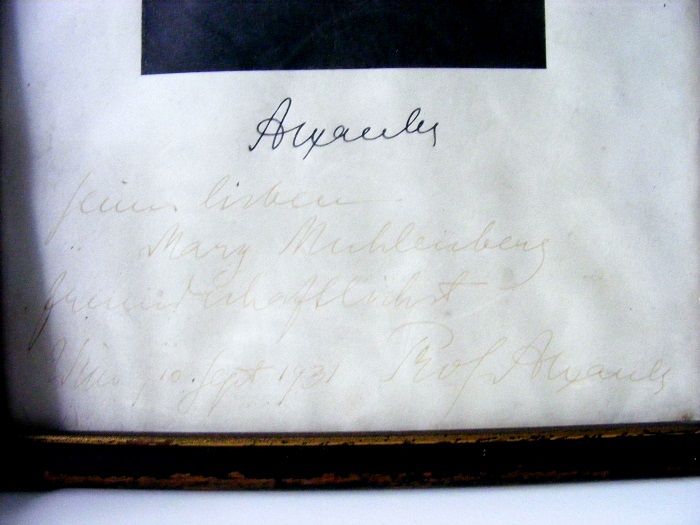 Alexander
seiner lieben
Mary Muhlenberg
freundschaftlichst
Wien, 10. Sept 1931 Prof Alexander